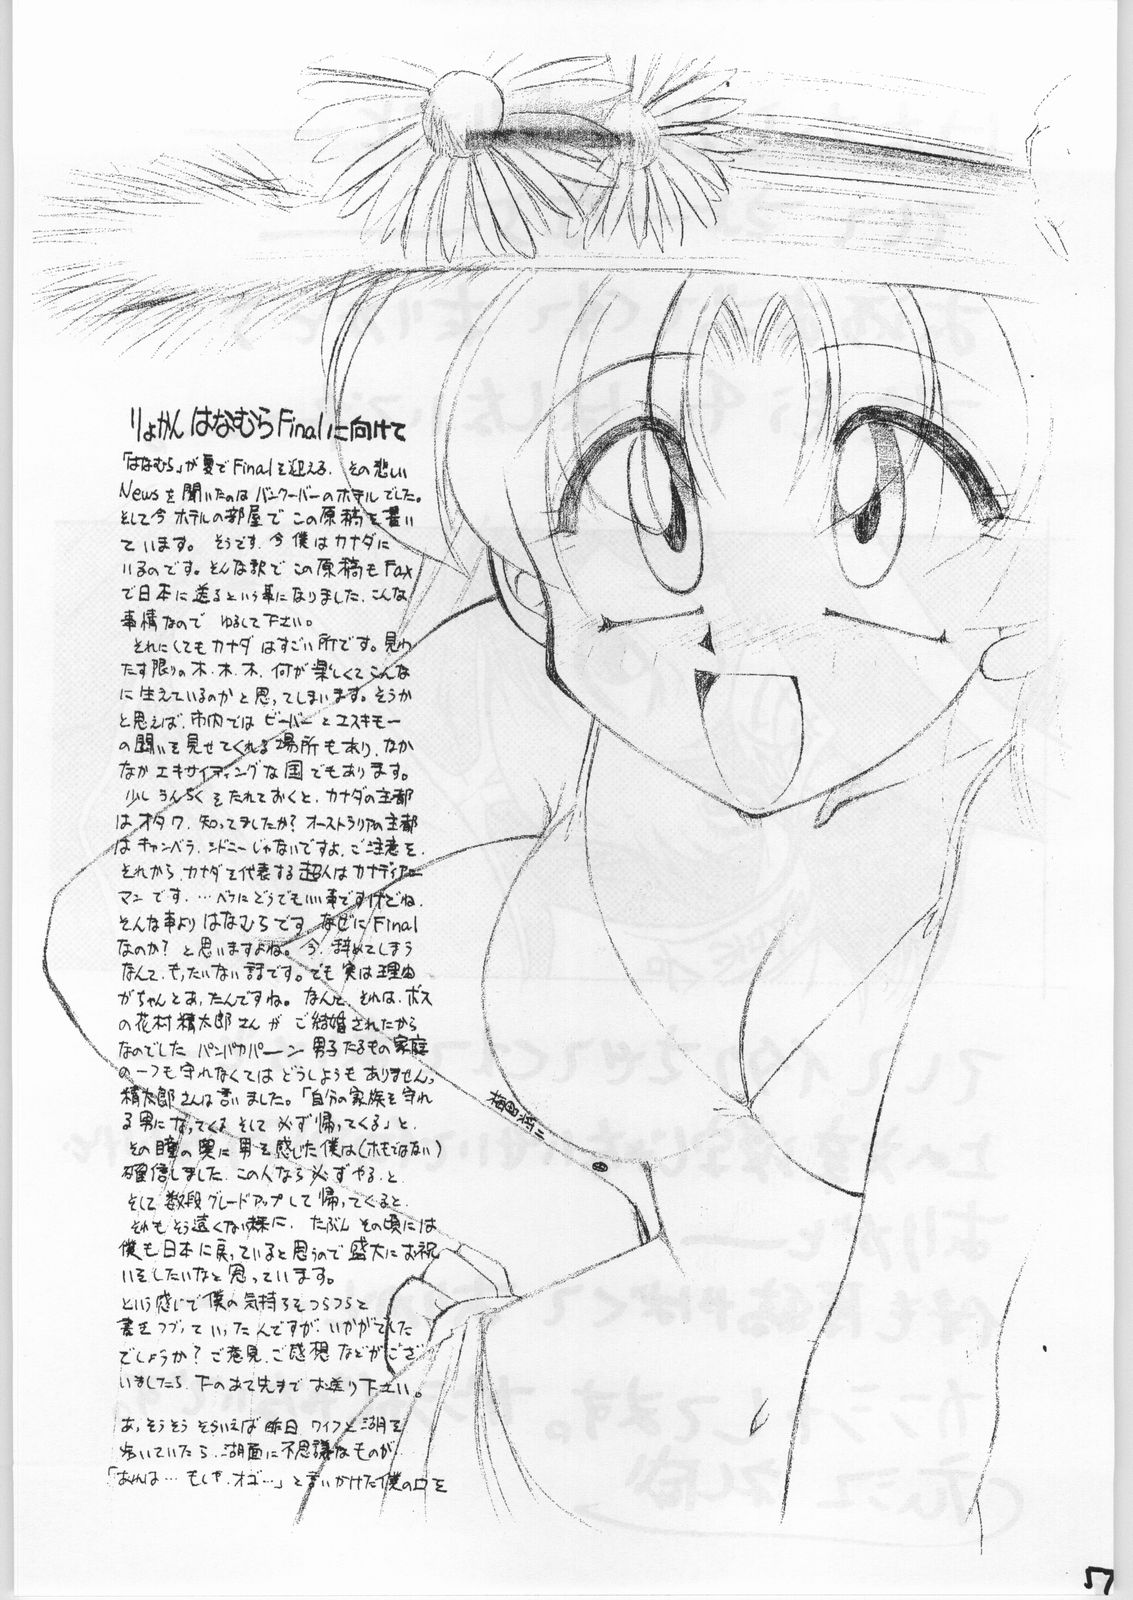 りょかん はなむら Final に向けて
「はなむら」が夏で Final を迎える、その悲しい
News を聞いたのは バンクーバーのホテルでした。
そして今 ホテルの部屋で この原稿を書い
ています。 そうです、今僕はカナダに
いるのです。そんな訳で この原稿も Fax
で日本に送るという事になりました、こんな
事情なので ゆるして下さい。
それにしても カナダはすごい所です。見わ
たす限りの 木、木、木、何が楽しくてこんな
に生えているのかと思ってしまいます。そうか
と思えば、市内では ビーバーとエスキモー
の闘いを見せてくれる場所もあり、なか
なか エキサイティングな国でもあります。
少しうんちくをたれておくと、カナダの主都
は オタワ、知ってましたか? オーストラリアの主都
は キャンベラ、シドニーじゃないですよ、ご注意を、
それから、カナダを代表する超人は カナディアン
マンです。…べつにどうでもいい事ですけどね、
そんな事より はなむらです なぜに Final
なのか? と思いますよね。今、辞めてしまう
なんて、もったいない話です。でも 実は理由
がちゃんとあったんですね。なんと、それは、ボス
の花村精太郎さん が ご結婚されたから
なのでした パンパカパーン 男子たるもの 家庭
の一つも守れなくては どうしようも ありません、
精太郎さんは言いました。「自分の家族を守れ
る男になってくる そして 必ず帰ってくる」と、
その瞳の奥に 男を感じた僕は(ホモではない)
確信しました、この人なら 必ずやる、と
そして 数段グレードアップして 帰ってくると、
それも そう遠くない様に、たぶん その頃には
僕も日本に戻っていると思うので 盛大にお祝
いをしたいなと 思っています。
という感じで 僕の気持ちをつらつらと
書きつづっていったんですが、いかがでした
でしょうか? ご意見、ご感想 などがござ
いましたら、下のあて先まで お送り下さい。
あ、そうそう そういえば 昨日 ワイフと 湖を
歩いていたら、湖面に不思議なものが…
「あれは… もしや、オゴ…」と言いかけた僕の口を
梅田将二
57